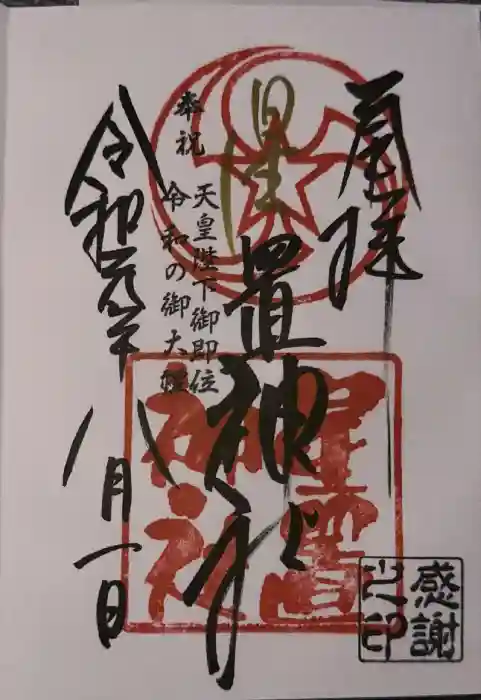 奉拝
星置神社
奉祝 天皇陛下御即位
令和の御大礼
令和元年八月一日
星置神社
感謝之印